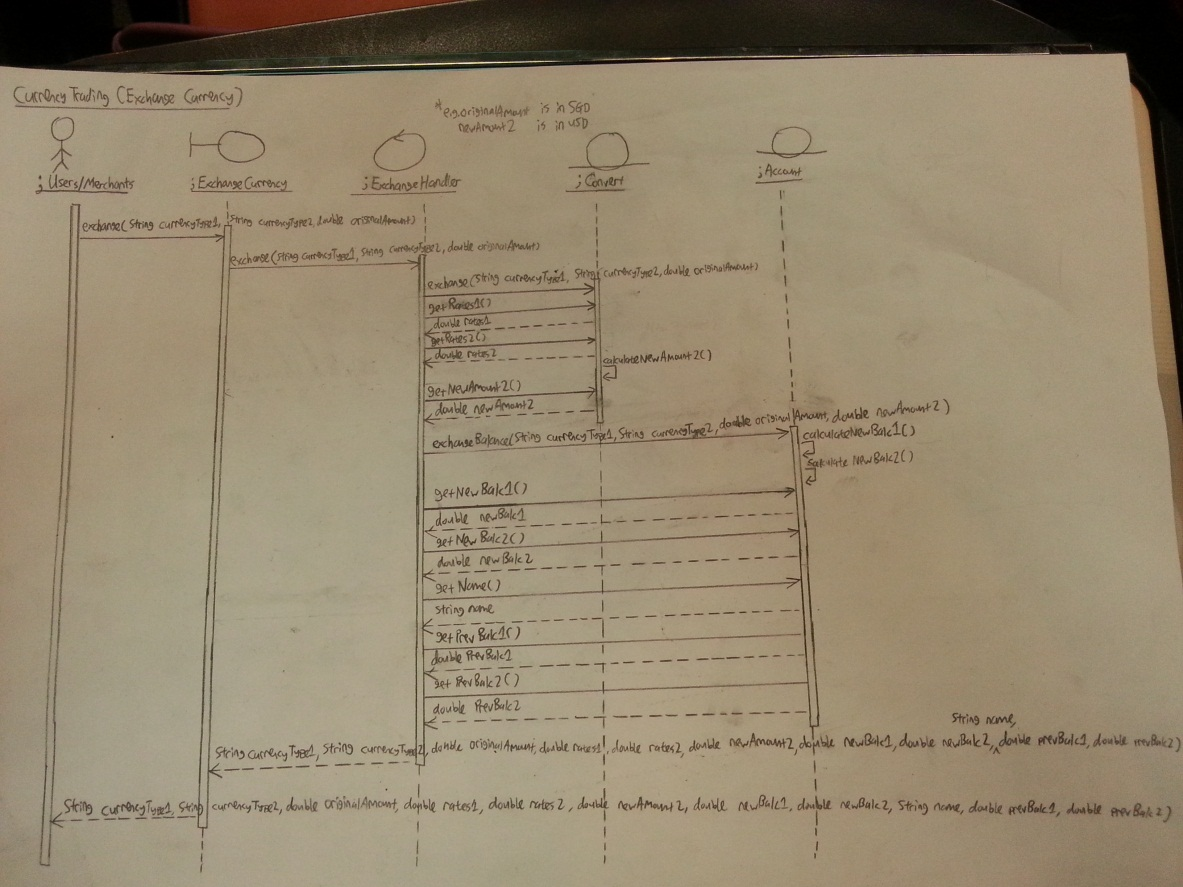 Currency Trading (Exchange Currency)
*e.g. originalAmount is in SGD
newAmount2 is in USD
; Users/Merchants
; ExchangeCurrency
; ExchangeHandler
; Convert
; Account
exchange(String currencyType1, String currencyType2, double originalAmount)
exchange(String currencyType1, String currencyType2, double originalAmount)
exchange(String currencyType1, String currencyType2, double originalAmount)
getRates1()
double rates1
getRates2()
double rates2
calculateNewAmount2()
getNewAmount2()
double newAmount2
exchangeBalance(String currencyType1, String currencyType2, double originalAmount, double newAmount2)
calculateNewBalc1()
calculate NewBalc2()
getNewBalc1()
double newBalc1
getNewBalc2()
double newBalc2
getName()
String name
getPrevBalc1()
double PrevBalc1
get PrevBalc2()
double PrevBalc2
String name,
String currencyType1, String currencyType2, double originalAmount, double rates1, double rates2, double newAmount2, double newBalc1, double newBalc2, double prevBalc1, double prevBalc2)
String currencyType1, String currencyType2, double originalAmount, double rates1, double rates2, double newAmount2, double newBalc1, double newBalc2, String name, double prevBalc1, double prevBalc2)